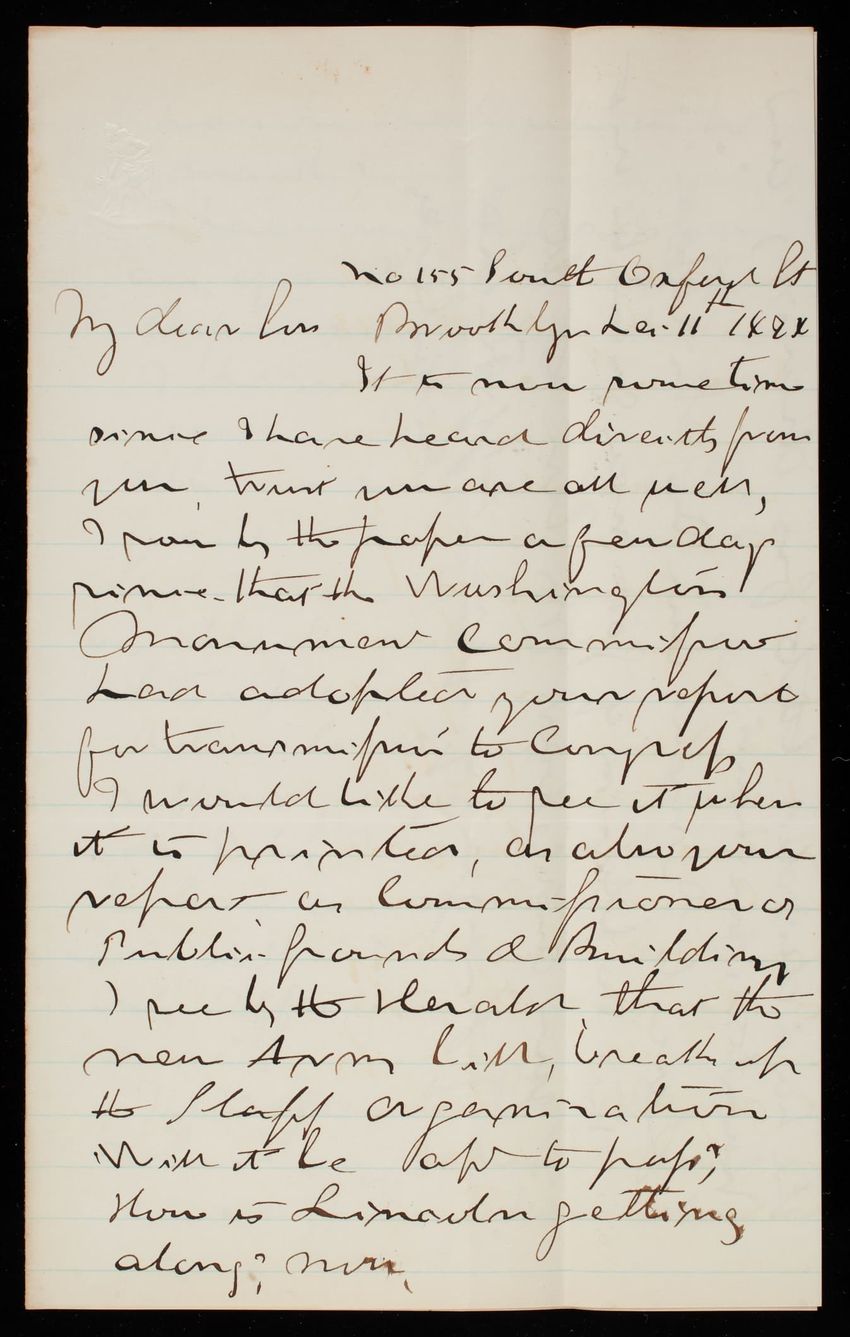 No 155 South Oxford St
My dear Son Brooklyn Dec 11th 1878
It is now some time
since I have heard directly from
you, trust you are all well,
I saw by the paper a few days
since that the Washington
Monument Commission
had adopted your report
for transmission to Congress
I would like to see it when
it is printed, as also your
report as Commissioner of
Public Grounds & Buildings
I see by the Herald, that the
new Army bill, breaks up
the Staff organization
Will it be apt to pass?
How is Lincoln getting
along? now,